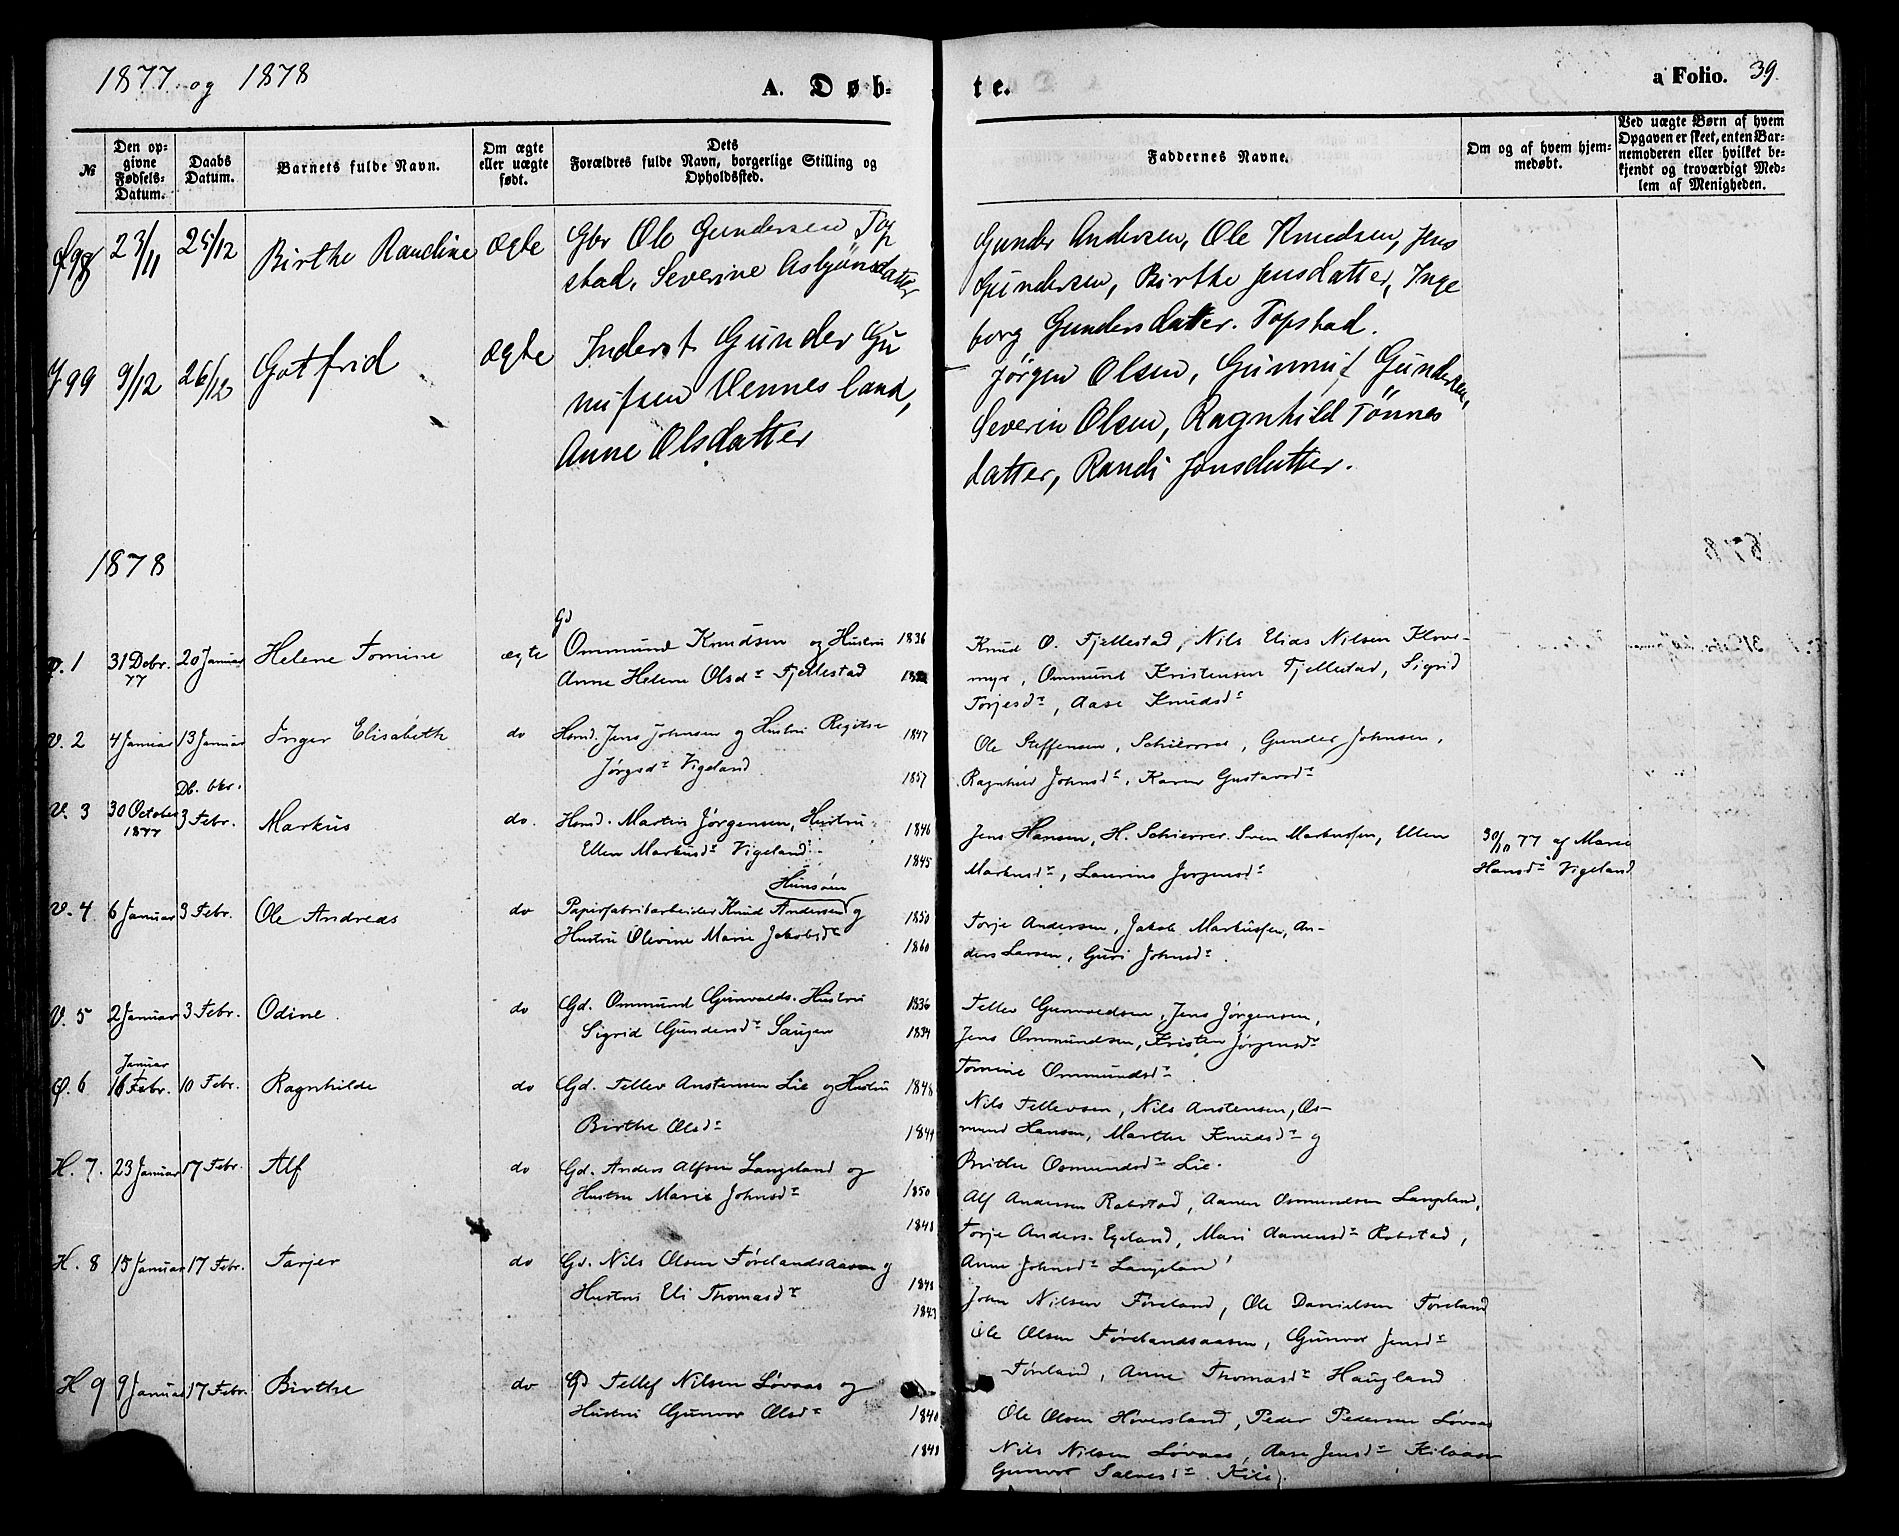 1877 og 1878
A. Døb-
te.
a Folio. 39.
№
Den op-
givne
Fødsels-
Datum.
Daabs
Datum.
Barnets fulde Navn.
Om ægte
eller uægte
født.
Dets
Forældres fulde Navn, borgerlige Stilling og
Opholdssted.
Faddernes Navne.
Om og af hvem hjem-
medøbt.
Ved uægte Børn af hvem
Opgaven er skeet, enten Bar-
nemoderen eller hvilket be-
kjendt og troværdigt Med-
lem af Menigheden.
Ø 98 23/11 25/12 Birthe Randine ægte Gbr Ole Gundersen Top
stad, Severine Asbjønsdatter
Gunder Andersen, Ole Knudsen, Jens
Gundersen, Birthe Jensdatter, Inge
borg Gundersdatter. Topstad.
99 9/12 26/12 Gotfrid ægte Inderst Gunder Gu
nufsen Vennesland,
Anne Olsdatter
Jørgen Olsen, Gunnuf Gundersen,
Severin Olsen, Ragnhild Tønnes
datter, Randi Jensdatter.
1878
Ø. 1 31 Debr. 77 20 Januar Helene Tomine ægte Gd Ommund Knudsen og Hustru 1836
Anne Helene Olsdr Fjellestad
Knud O. Fjellestad, Nils Elias Nilsen Klove-
myr, Ommund Kristensen Fjellestad, Sigrid
Torjesdr, Aase Knudsdr
V. 2 4 Januar 13 Januar Inger Elisabeth do Hsmd. Jens Johnsen og Hustru Regitse 1847
Jørgsdr Vigeland 1857
Ole Steffensen, Schierrer, Gunder Johnsen,
Ragnhild Johnsdr, Karen Gustavsdr
Db. bkr.
V. 3 30 October 1877 3 Febr. Markus do. Hsmd. Martin Jørgensen, Hustru 1846
Ellen Markusdr Vigeland 1845
Jens Hansen, H. Schierrer. Sven Markussen, Ellen
Markusdr, Laurine Jørgensdr
30/10 77 af Marie
Hansdr Vigeland
Hunsøen
V. 4 6 Januar 3 Febr. Ole Andreas do Papirfabrikarbeider Knud Andersen og 1850
Hustru Olevine Marie Jakobsdr 1860
Torje Andersen, Jakob Markussen, An-
ders Larsen, Guri Johnsdr.
V. 5 2 Januar 3 Febr. Odine do Gd. Ommund Gunvalds. Hustru 1836
Sigrid Gundersdr Saugen 1834
Tellev Gunvaldsen, Jens Jørgensen,
Jens Ommundsen, Kristen Jørgensdr
Tomine Ommundsdr
Ø. 6 16 Januar Febr. 10 Febr. Ragnhilde do Gd. Tellev Anstensen Lie og Hustru 1848
Birthe Olsdr 1849
Nils Tellevsen, Nils Anstensen, Os-
mund Hansen, Marthe Knudsdr og
Birthe Osmundsdr Lie.
H. 7. 23 Januar 17 Febr. Alf do Gd. Anders Alfsen Langeland og
Hustru Marie Johnsdr 1850
1848
Alf Andersen Robstad, Aanen Osmundsen Langeland,
Torje Anders. Egeland, Mari Aanensdr Robstad,
Anne Johnsdr Langeland
H. 8 15 Januar 17 Febr. Tarjer do Gd. Nils Olsen Førelandsaasen og
Hustru Eli Thomasdr 1848
1843
John Nilsen Føreland, Ole Danielsen Føreland
Ole Olsen Førelandsaasen, Gunvor Jensdr
Førland, Anne Thomasdr Haugland
H 9 9 Januar 17 Febr. Birthe do Gd Tellef Nilsen Løvaas og
Hustru Gunvor Olsdr 1840
1848
Ole Olsen Høversland, Peder Pedersen Løvaas
Nils Nilsen Løvaas, Aase Jensdr Kilaasen
Gunvor Salvesdr Kile.